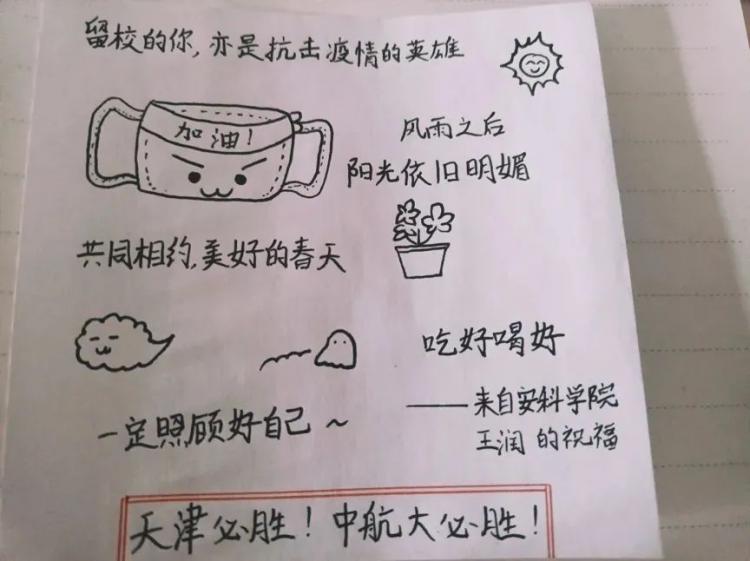 留校的你,亦是抗击疫情的英雄
加油!
风雨之后
阳光依旧明媚
共同相约,美好的春天
吃好喝好
一定照顾好自己~
——来自安科学院
王润 的祝福
天津必胜!中航大必胜!